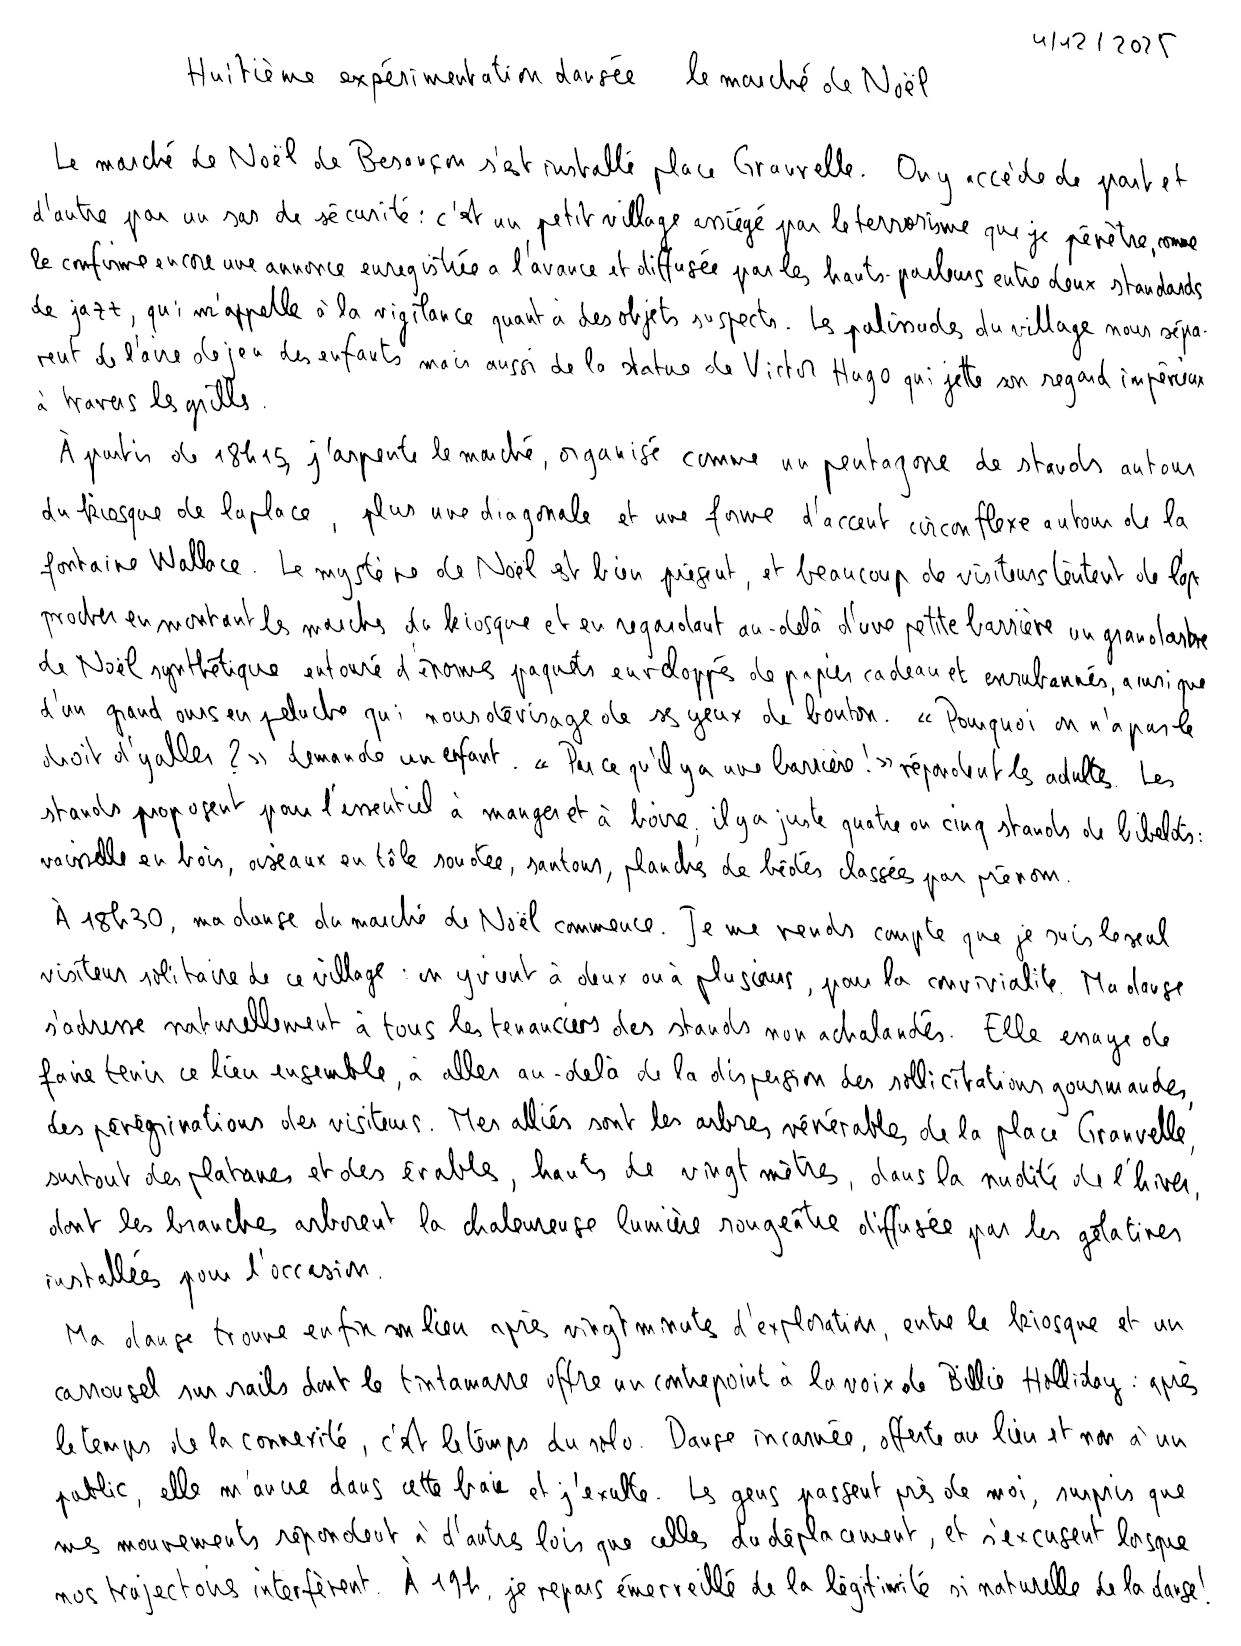 4/12/2025
Huitième expérimentation dansée le marché de Noël
Le marché de Noël de Besançon s'est installé place Granvelle. On y accède de part et
d'autre par un sas de sécurité : c'est un petit village assiégé par le terrorisme que je pénètre, comme
le confirme encore une annonce enregistrée a l'avance et diffusée par les hauts-parleurs entre deux standards
de jazz, qui m'appelle à la vigilance quant à des objets suspects. Les palissades du village nous sépa-
rent de l'aire de jeu des enfants mais aussi de la statue de Victor Hugo qui jette son regard impérieux
à travers les grilles.
À partir de 18h15, j'arpente le marché, organisé comme un pentagone de stands autour
du kiosque de la place, plus une diagonale et une forme d'accent circonflexe autour de la
fontaine Wallace. Le mystère de Noël est bien présent, et beaucoup de visiteurs tentent de l'ap-
procher en montant les marches du kiosque et en regardant au-delà d'une petite barrière un grand arbre
de Noël synthétique entouré d'énormes paquets enveloppés de papier cadeau et enrubannés, ainsi que
d'un grand ours en peluche qui nous dévisage de ses yeux de bouton. « Pourquoi on n'a pas le
droit d'y aller ? » demande un enfant. « Parce qu'il y a une barrière ! » répondent les adultes. Les
stands proposent pour l'essentiel à manger et à boire, il y a juste quatre ou cinq stands de bibelots :
vaisselle en bois, oiseaux en tôle soudée, santons, planches de bédés classées par prénom.
À 18h30, ma danse du marché de Noël commence. Je me rends compte que je suis le seul
visiteur solitaire de ce village : on y vient à deux ou à plusieurs, pour la convivialité. Ma danse
s'adresse naturellement à tous les tenanciers des stands non achalandés. Elle essaye de
faire tenir ce lieu ensemble, à aller au-delà de la dispersion des sollicitations gourmandes,
des pérégrinations des visiteurs. Mes alliés sont les arbres vénérables de la place Granvelle,
surtout des platanes et des érables, hauts de vingt mètres, dans la nudité de l'hiver,
dont les branches arborent la chaleureuse lumière rougeâtre diffusée par les gélatines
installées pour l'occasion.
Ma danse trouve enfin son lieu après vingt minutes d'exploration, entre le kiosque et un
carrousel sur rails dont le tintamarre offre un contrepoint à la voix de Billie Holliday : après
le temps de la connexité, c'est le temps du solo. Danse incarnée, offerte au lieu et non à un
public, elle m'ancre dans cette baie et j'exulte. Les gens passent près de moi, surpris que
mes mouvements répondent à d'autres lois que celles du déplacement, et s'excusent lorsque
nos trajectoires interfèrent. À 19h, je repars émerveillé de la légitimité si naturelle de la danse !